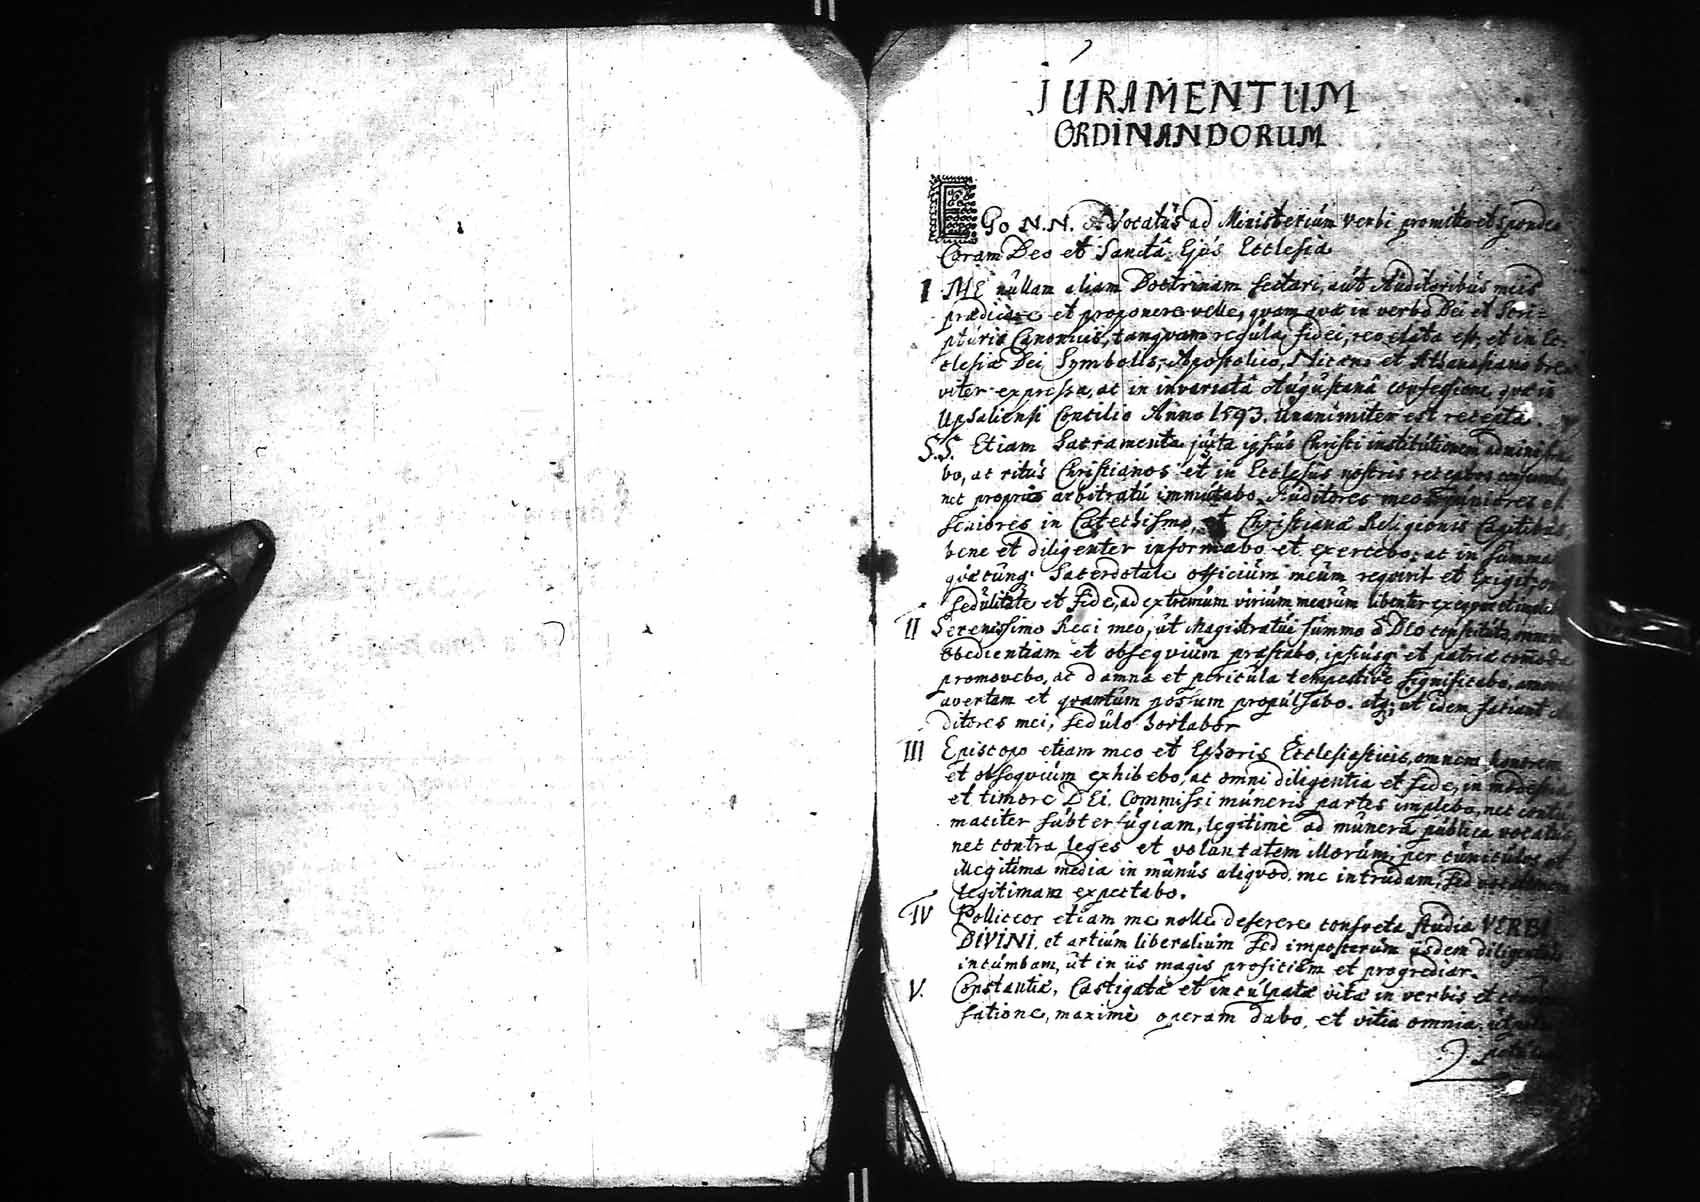 JURAMENTUM
ORDINANDORUM
EGo N.N. Vocatús ad Ministeriúm verbi promitto et spondeo
Coram Deo et Sanctâ Ejús Ecclesia
I ME núllam aliam Doctrinam sectari, aút Aúditoribús meis
prædicare et proponere velle, qvam qvæ in verbo Dei et Scri=
ptúris Canonicis, tanqvam regúla fidei, revelata est, et in Ec-
clesiæ Dei Symbolis, Apostolico, Niceno et Athanasiano bre
viter expressa, ac in invariatâ Aúgústanâ confessione, qvæ in
Upsaliensi Concilio Anno 1593. Unanimiter est recepta
S.S. Etiam Sacramenta júxta ipsiús Christi institútionem administra
bo, ac ritús Christianos et in Ecclesiis nostris receptos
nec proprio arbitratú immútabo. Aúditores meos júniores et
seniores in Catechismo, et Christianæ Religionis Capitibús,
bene et diligenter informabo et exercebo; ac in súmma
qvæcúnq; Sacerdotale officiúm meúm reqvirit et exigit,
sedúlitate et fide, ad extremúm viriúm mearúm libenter
II Serenissimo Regi meo, út Magistratúi súmmo â DEO constitúto, omnem
obedientiam et obseqviúm præstabo, ipsiúsq; et patriæ com̄oda
promovebo, ac damna et pericúla tempestivè significabo,
avertam et qvantúm possúm propúlsabo. atq; út idem faciant
ditores mei, sedúlo hortabor
III Episcopo etiam meo et Ephoris Ecclesiasticis, omnem honorem
et obseqviúm exhibebo, ac omni diligentia et fide, in modestia
et timore DEi. Commissi múneris partes implebo, nec contú
maciter súbterfúgiam, legitimè ad múnera pública vocatús,
nec contra leges et volúntatem illorúm, per cúnicúlos et
illegitima media in múnús aliqvod, me intrúdam, sed vocationem
legitimam expectabo.
IV Polliceor etiam me nolle deserere consveta stúdia VERBI
DIVINI, et artiúm liberaliúm sed imposterúm iisdem
incúmbam, út in iis magis proficiam et progrediar.
V. Constantiæ, Castigatæ et incúlpatæ vitæ in verbis et
satione, maximè operam dabo, et vitia omnia,